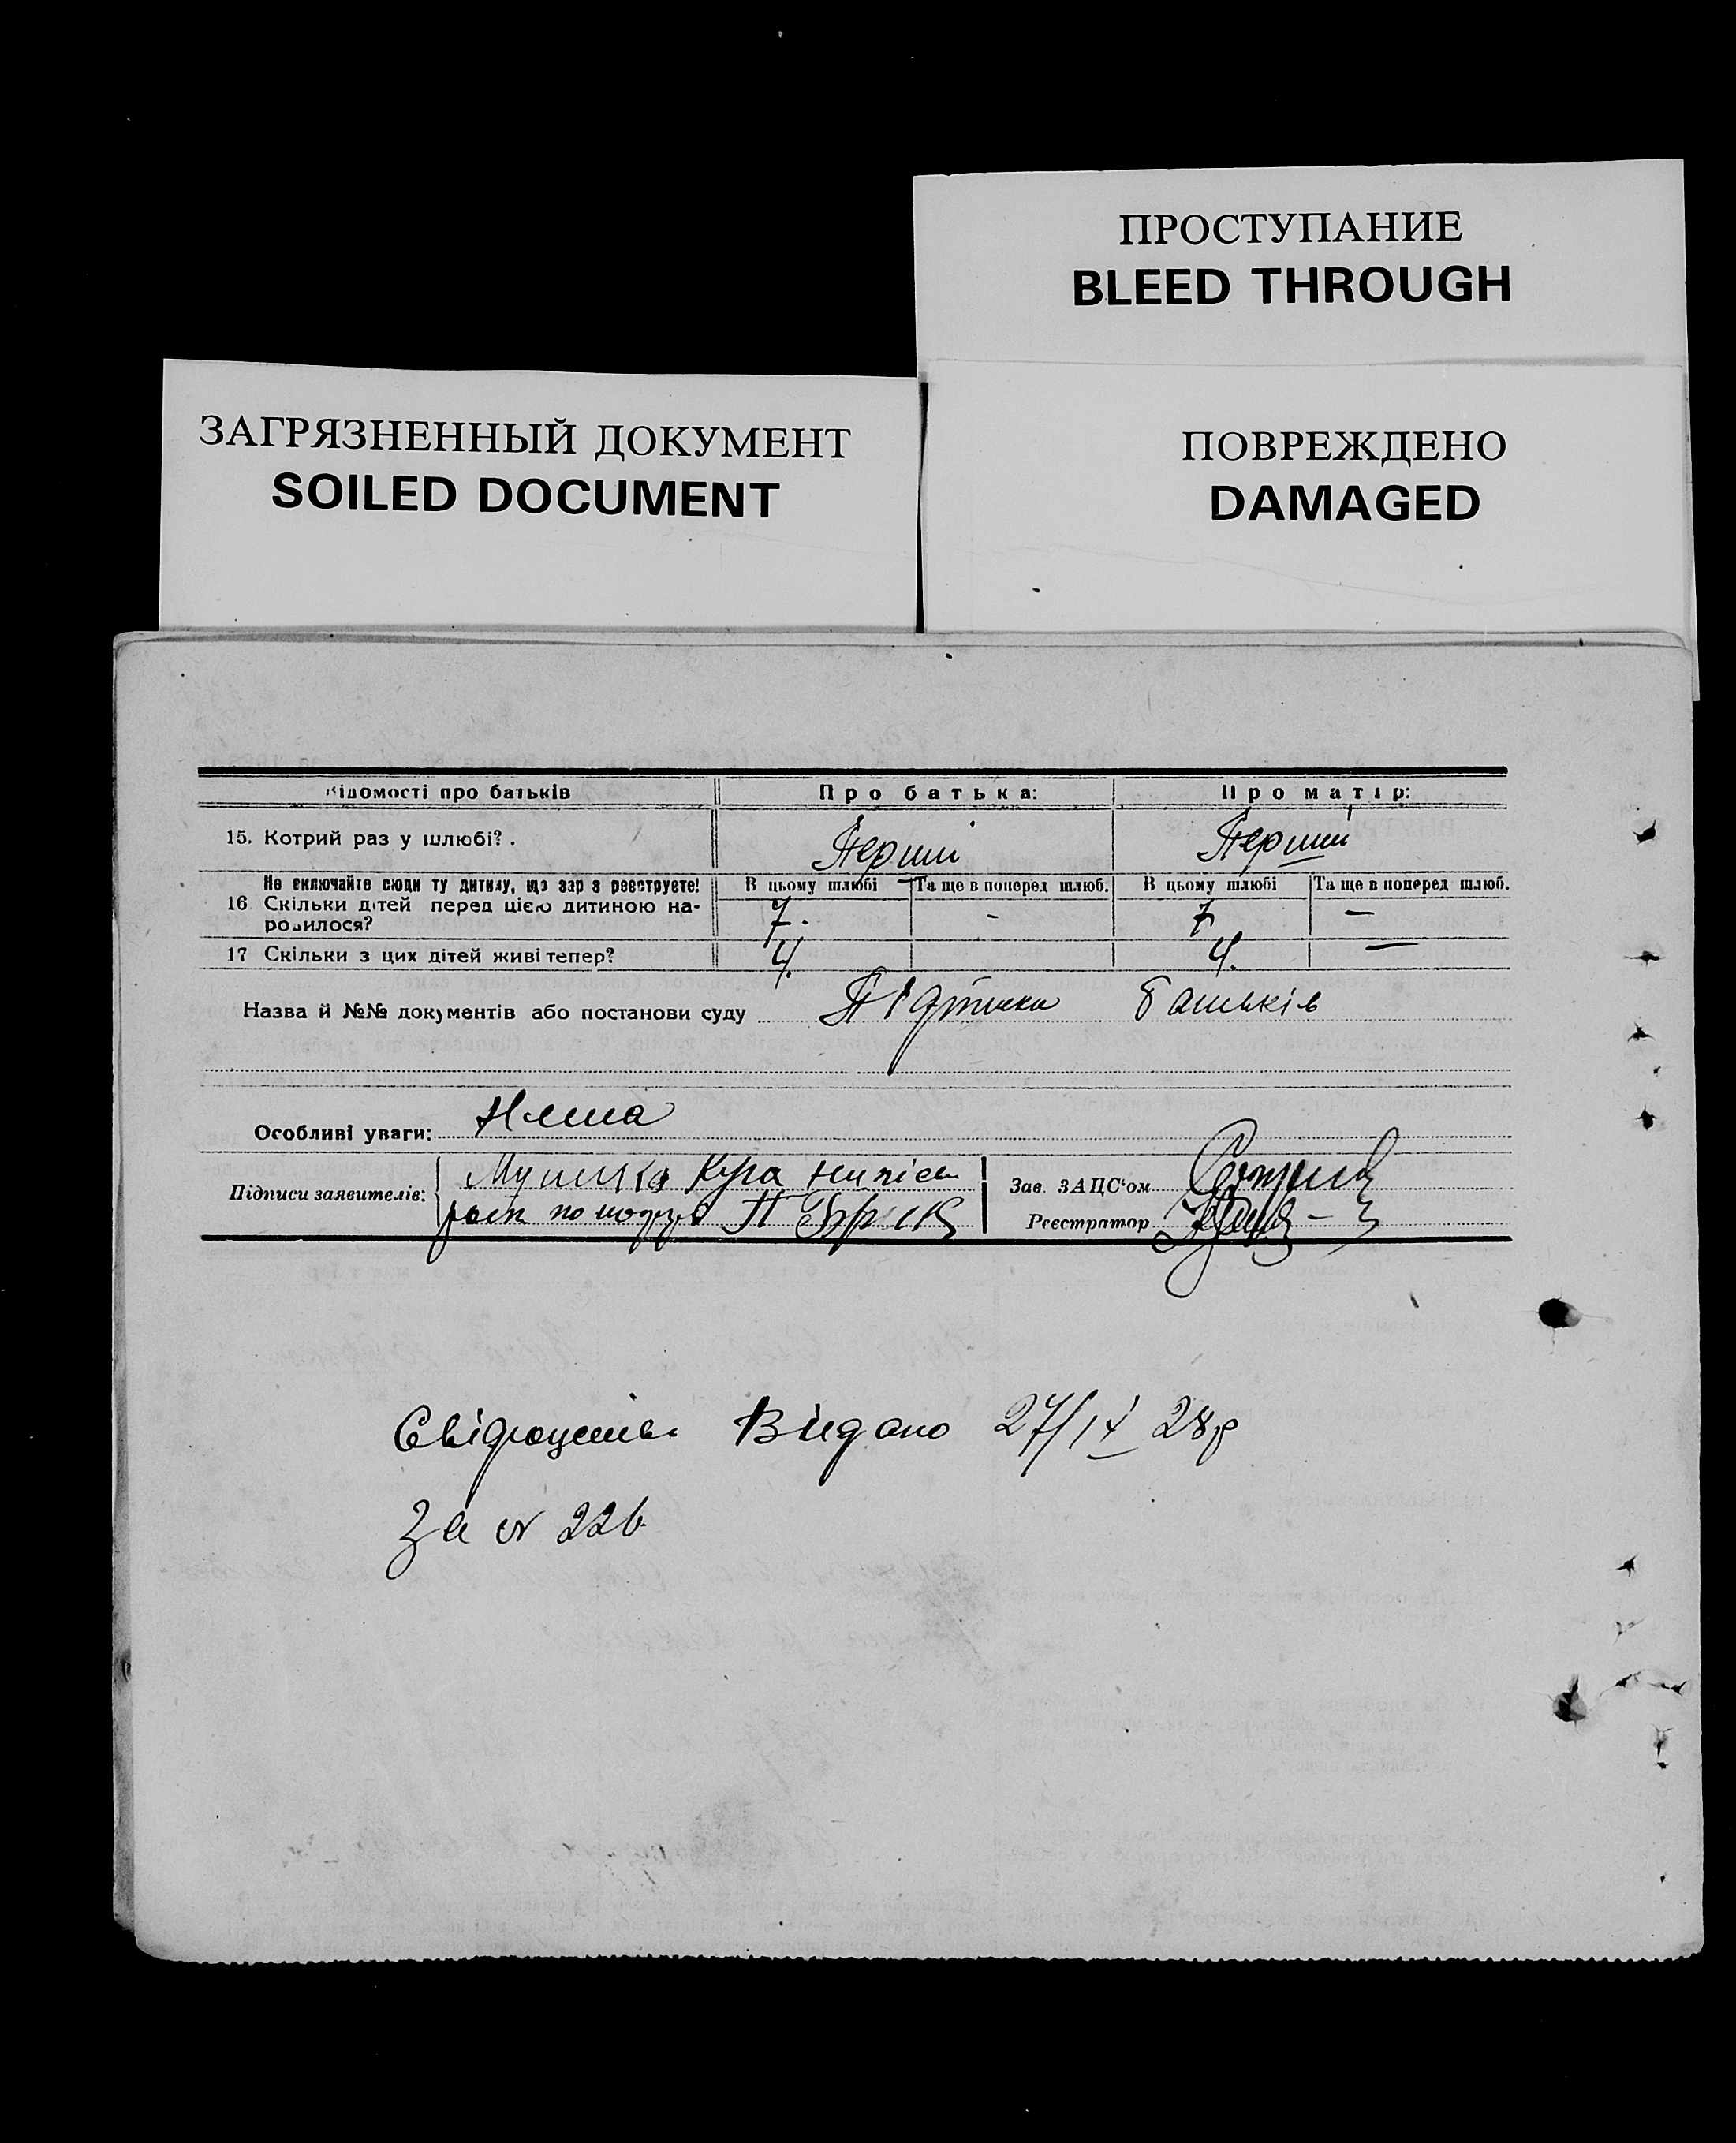 ПРОСТУПАНИЕ
BLEED THROUGH
ЗАГРЯЗНЕННЫЙ ДОКУМЕНТ
SOILED DOCUMENT
ПОВРЕЖДЕНО
DAMAGED
Відомості про батьків Про батька: Про матір:
15. Котрий раз у шлюбі? . Перший Перший
Не включайте сюди ту дитину, що зараз реєструєте! В цьому шлюбі Та ще в поперед шлюб. В цьому шлюбі Та ще в поперед шлюб.
16 Скільки дітей перед цією дитиною на-
родилося? 7. - 7 —
17 Скільки з цих дітей живі тепер? 4. 4. —
Назва й №№ документів або постанови суду батьків
Особливі уваги: Нема
Підписи заявителів: Кура
Зав. ЗАЦС'ом
по П
Реєстратор
Свідоцтво Видано 27/IX 28р
За № 226